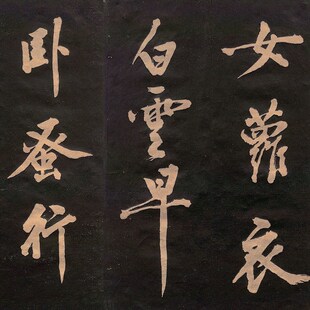 女蘿衣
白雲早
卧蚤行